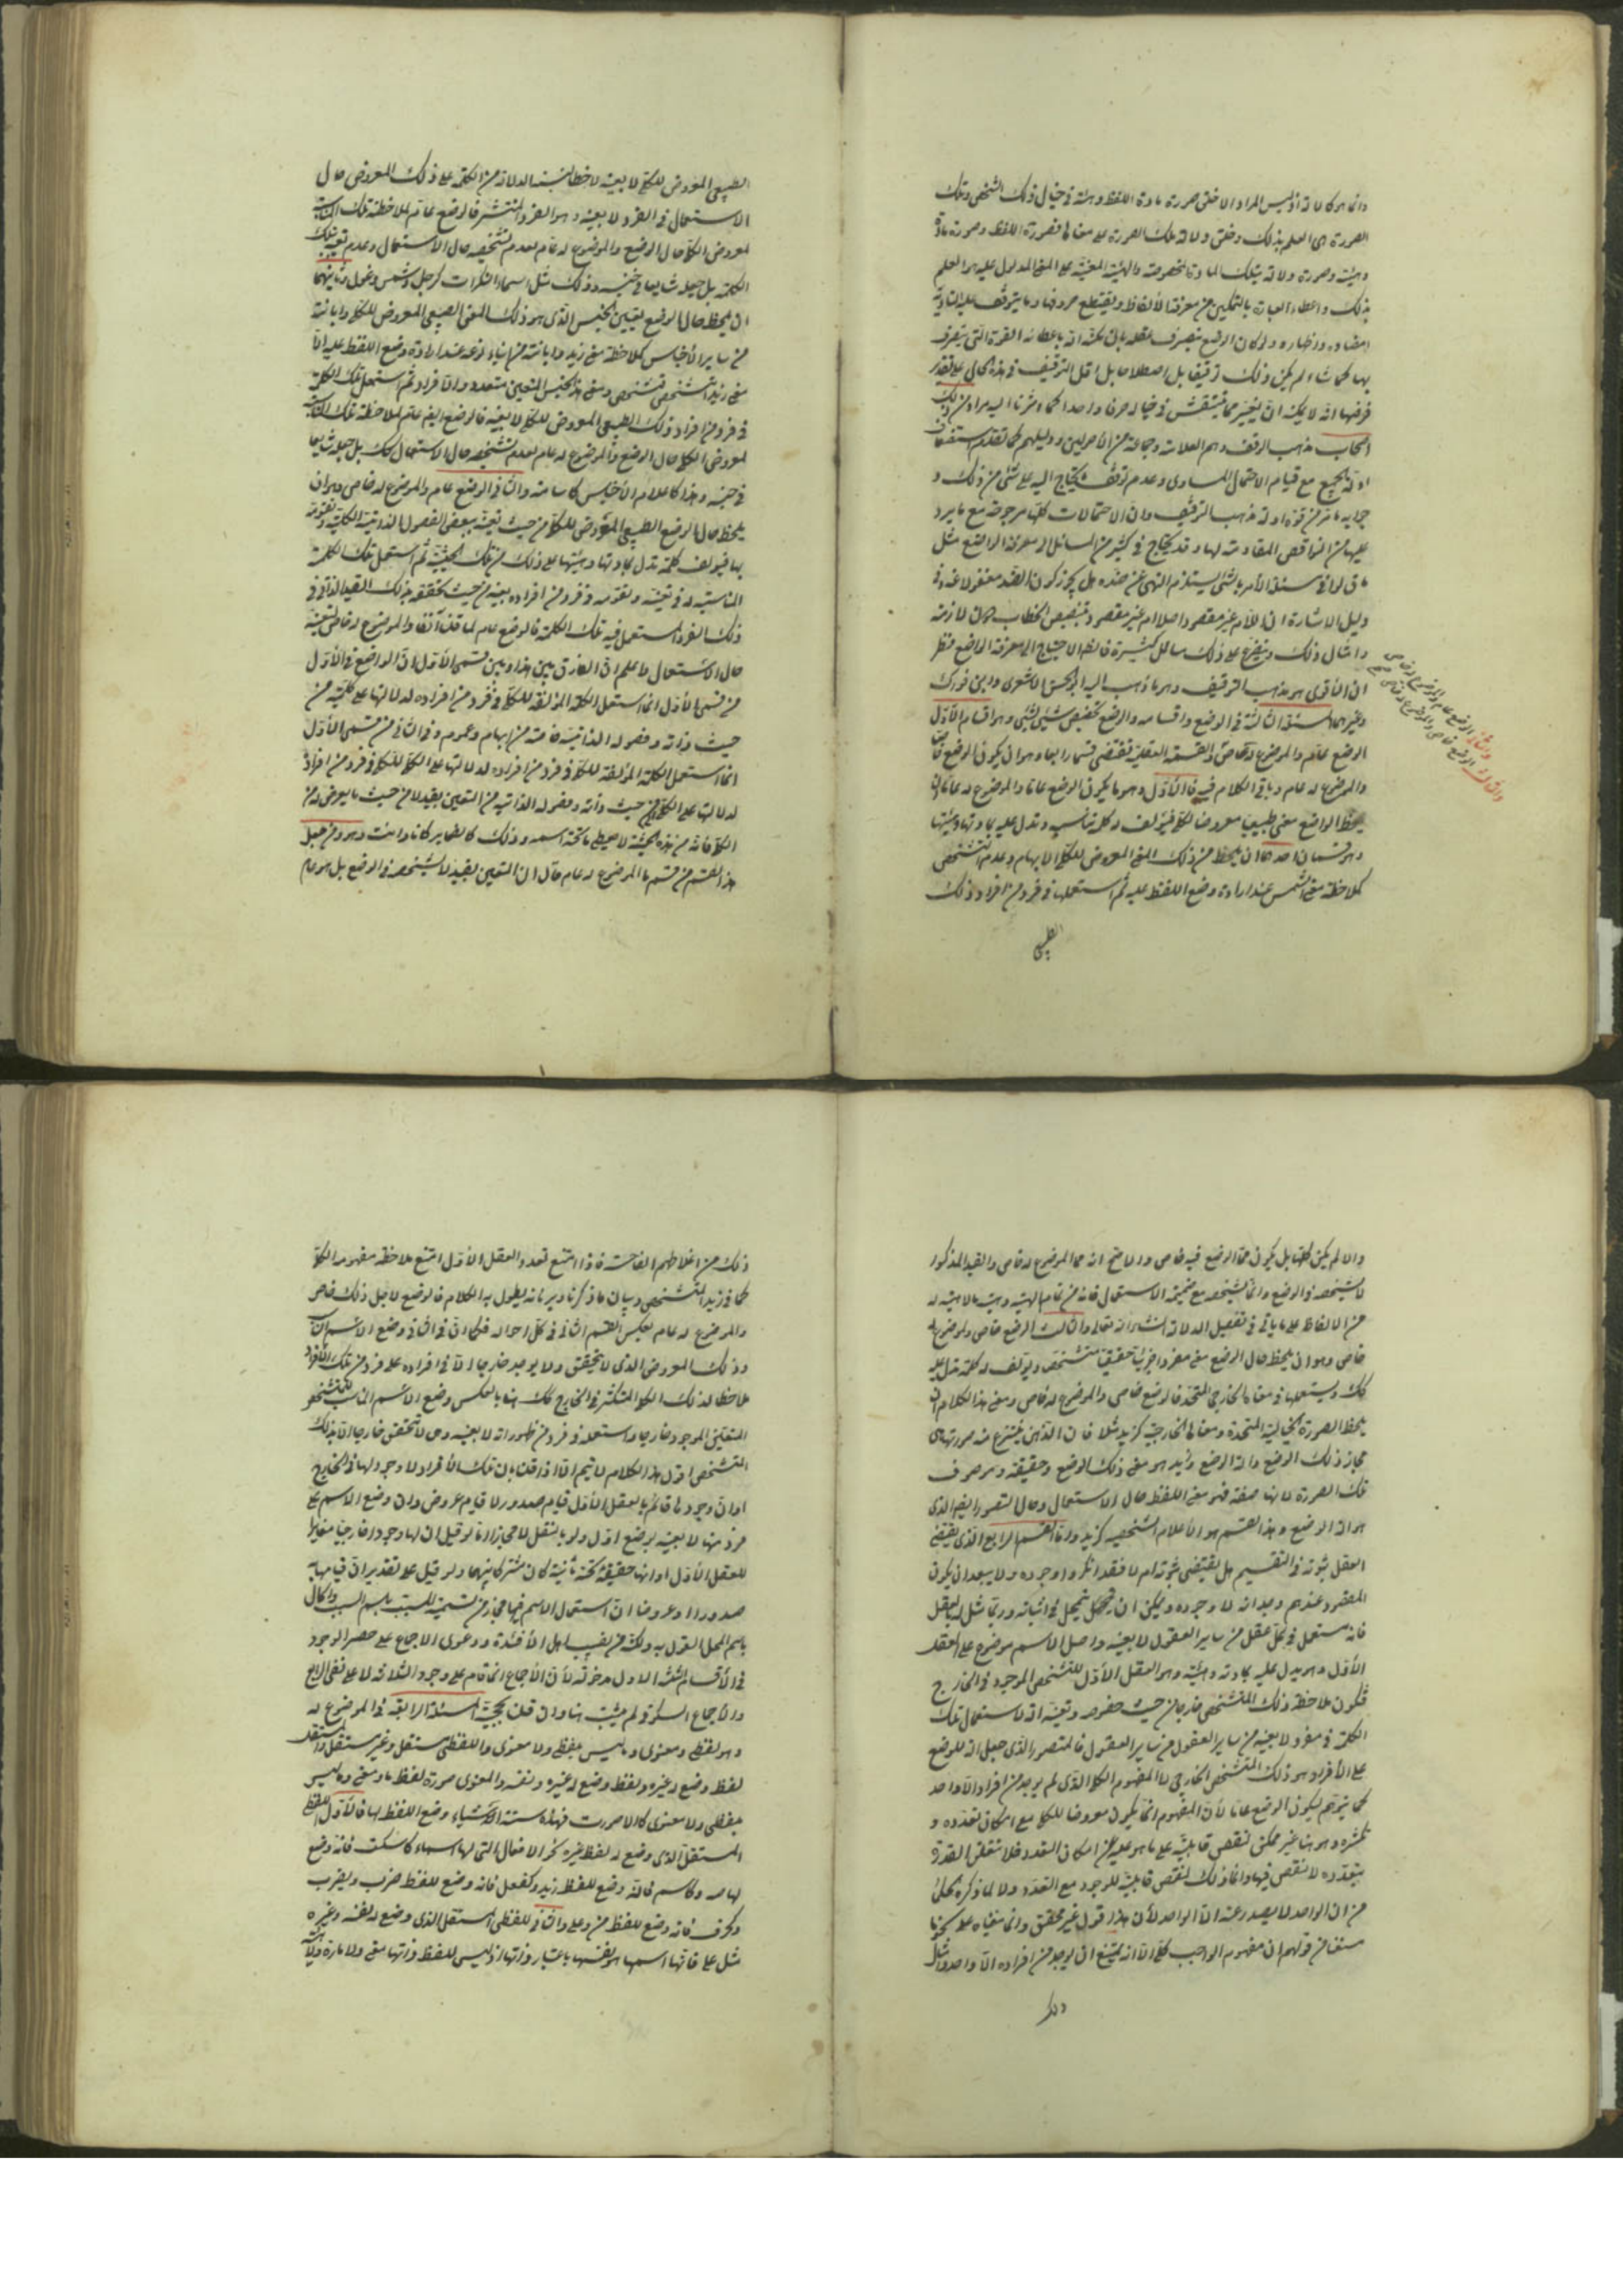 وانما هو كالآلة اذ ليس المراد الا خلق صورة مادة اللفظ وهيئة في خيال ذلك الشخص وتلك
الصورة هي العلم بذلك وخلق دلالة تلك الصورة على معناها فصورة اللفظ وصورة مادة
وهيئة وصورة دلالة بتلك المادة المخصوصة والهيئة المعينة على المعنى المدلول عليه هو العلم
بذلك واعطاء العبارة بالتمكين من معرفة الألفاظ وتقطيع حروفها وما يتوقف عليه التادية
بها كما شاء لم يكن ذلك توقيفا بل اصطلاحا بل اقل التوقيف في هذه الحال على تقدير
فرضها انه لا يمكنه ان يغير مما ينتقش في خياله حرفا واحدا كما اشرنا اليه مرادا من ذلك
اصحاب مذهب الوقف وهم العلامة وجماعة من الأصوليين ودليلهم كما تقدم
ادلة الجميع مع قيام الاحتمال المساوي وعدم توقف ما يحتاج اليه على شئ من ذلك و
جوابه ما مر من قوة ادلة مذهب التوقيف وان الاحتمالات كلها مرجوحة مع ما يرد
عليها من النواقض المقاومة لها وقد يحتاج في كثير من المسائل الى معرفة الواضع مثل
ما قالوا في مسئلة الأمر بالشئ يستلزم النهي عن ضده هل يجوز كون الضد مغفولا عنه وفي
دليل الاشارة ان اللازم غير مقصود اصلا ام غير مقصود بتنصيص الخطاب وان لازمه
وامثال ذلك ويتفرع على ذلك مسائل كثيرة فانظر الاحتياج الى معرفة الواضع فنظر
ان الأقوى هو مذهب التوقيف وهو ما ذهب اليه ابو الحسن الاشعري وابن فورك
وغيرهما المسئلة الثالثة في الوضع واقسامه والوضع تخصيص شئ بشئ وهو اقسام الأول
الوضع عام والموضوع له خاص والقسمة العقلية تقتضي قسما رابعا وهو ان يكون الوضع خاصا
والموضوع له عام وياتي الكلام فيه فالأول وهو ما يكون الوضع عاما والموضوع له عاما ان
يلحظ الواضع معنى طبيعيا معروضا للكلي فيؤلف له كلمة تناسبه وتدل عليه بمادتها وهيئتها
وهو قسمان احدهما ان يلحظ من ذلك المعنى المعروض للكلي الابهام وعدم التشخص
كملاحظة معنى الشمس عند ارادة وضع اللفظ عليه ثم استعملها في فرد من افراد ذلك
الطبيعي
والثاني الوضع عام والموضوع له خاص
والثالث الوضع خاص والموضوع له خاص
الطبيعي المعروض للكلي لا بعينه لاخطا لنسبة الدلالة من الكلمة على ذلك المعروض حال
الاستعمال في الفرد لا بعينه وهو الفرد المنتشر فالوضع عام لملاحظة تلك المناسبة
لمعروض الكلي حال الوضع والموضوع له عام لعدم تشخصه حال الاستعمال وعدم تعينه بتلك
الكلمة بل جعله شايعا في جنسه وذلك مثل اسماء النكرات كرجل وشمس وغول وثانيهما
ان يلحظ حال الوضع تعيين الجنس الذي هو ذلك المعنى الطبيعي المعروض للكلي وابانته
من ساير الأجناس كملاحظة معنى زيد وابانته من ابناء نوعه عند ارادة وضع اللفظ عليه الا ان
معنى زيد متشخص ومعنى هذا الجنس المتعين متعدد والأفراد ثم استعمل تلك الكلمة
في فرد من افراد ذلك الطبيعي المعروض للكلي لا بعينه فالوضع ايضا عام لملاحظة تلك المناسبة
لمعروض الكلي حال الوضع والموضوع له عام لعدم تشخصه حال الاستعمال كك بل جعله شايعا
في جنسه وهذا كاعلام الأجناس كاسامة والثاني الوضع عام والموضوع له خاص وهو ان
يلحظ حال الوضع الطبيعي المعروض للكلي من حيث تعينه ببعض الفصول الذاتية الكلية وتقومه
بها فيؤلف كلمة تدل بمادتها وهيئتها على ذلك من تلك الحيثية ثم استعمل تلك الكلمة
المناسبة له في تعينه وتقومه في فرد من افراده بعينه من حيث تحققه بذلك القيد الذاتي في
ذلك الفرد المستعمل فيه تلك الكلمة فالوضع عام لما قلنا آنفا والموضوع له خاص لتعينه
حال الاستعمال واعلم ان الفارق بين هذا وبين قسمي الأول ان الواضع في الأول
من قسمي الأول انما استعمل الكلمة المؤلفة للكلي في فرد من افراده لدلالتها على كليته من
حيث ذاته وفصوله الذاتية خاصة من ابهام وعموم وفي الثاني من قسمي الأول
انما استعمل الكلمة المؤلفة للكلي في فرد من افراده لدلالتها على الكلي للكلي في فرد من افراده
لدلالتها على الكلي من حيث ذاته وفصوله الذاتية من التعيين بقيد لا من حيث ما يعرض له من
الكلي فانه من هذه الحيثية لا يعطى ما تحته اسمه وذلك كالضماير كانا وانت وهو ومن جعل
هذا القسم من قسم ما الموضوع له عام قال ان التعيين بقيد لا يشخصه في الوضع بل هو عام
والا لم يكن كليا بل يكون مما الوضع فيه خاص والاصح انه مما الموضوع له خاص والقيد المذكور
لا يشخصه في الوضع وانما يشخصه مع ضميمة الاستعمال فانه من تمام الهيئة وهيئة بالاهيئة له
من الالفاظ على ما ياتي في تفصيل الدلالة انشاء الله تعالى والثالث الوضع خاص والموضوع له
خاص وهو ان يلحظ حال الوضع معنى مفردا جزئيا حقيقيا متشخصا ويؤلف له كلمة تدل عليه
كك ويستعملها في معناها الخارجي المتحد فالوضع خاص والموضوع له خاص ومعنى هذا الكلام ان
يلحظ الصورة الخيالية المتحدة ومعناها الخارجي كزيد مثلا فان الذهن ينتزع منه صورته هي
مجاز ذلك الوضع والة الوضع وزيد هو معنى ذلك الوضع وحقيقته وموصوف
تلك الصورة لانها صفته فهو معنى اللفظ حال الاستعمال وحال التصور ايضا الذي
هو الة الوضع وهذا القسم هو الأعلام الشخصية كزيد واما القسم الرابع الذي يقتضي
العقل ثبوته في التقسيم هل يقتضي ثبوته ام لا فقد انكروا وجوده ولا يبعد ان يكون
المقصود عندهم وجدانه لا وجوده ويمكن ان يتمحل بتمحل في اثباته وربما مثل له بالعقل
فانه مستعمل في كل عقل من ساير العقول لا بعينه واصل الاسم موضوع على العقل
الأول وهو يدل عليه بمادته وهيئته وهو العقل الأول للتشخص الموجود في الخارج
فتكون ملاحظة ذلك المتشخص خارجا من حيث خصوصه وتعينه الة لاستعمال تلك
الكلمة في مفرد لا بعينه من ساير العقول من ساير العقول فالمتصور الذي جعل الة للوضع
على الأفراد هو ذلك المتشخص الخارجي لا المفهوم الكلي الذي لم يوجد من افراده الا واحد
كما يتوهم ليكون الوضع عاما لأن المفهوم انما يكون معروضا للكلي مع امكان تعدده و
تكثره وهو هنا غير ممكن لنقص قابليته على ما هو عليه عن امكان التعدد فلا تتعلق القدرة
بتعدده لا لنقص فيها وانما ذلك لنقص قابليته للوجود مع التعدد ولا لما ذكره الحكماء
من ان الواحد لا يصدر عنه الا الواحد لأن هذا قول غير محقق وانما بنيناه على نحو ما
سنقا من قولهم ان مفهوم الواجب كلي الا انه يمتنع ان يوجد من افراده الا واحد وامثل
ذلك
ذلك من اغلاطهم الفاحشة فاذا امتنع تعدد العقل الأول امتنع ملاحظة مفهومه الكلي
كما في زيد المتشخص وبيان ما ذكرنا وبرهانه يطول به الكلام فالوضع لأجل ذلك خاص
والموضوع له عام بعكس القسم الثاني في كل احواله فكما ان في الثاني وضع الاسم المناسب
وذلك المعروض الذي لا يتحقق ولا يوجد خارجا الا في افراده على فرد من تلك الأفراد
ملاحظا لذلك الكلي المتكثر في الخارج كك هنا بالعكس وضع الاسم المناسب للمتشخص
المتعين الموجود خارجا واستعمله في فرد من ظهوراته لا بعينه وهي لا تتحقق خارجا الا بذلك
المتشخص اقول هذا الكلام لا يتم الا اذا قلنا بان تلك الأفراد لا وجود لها في الخارج
او ان وجودها قائم بالعقل الأول قيام صدور لا قيام عروض وان وضع الاسم على
فرد منها لا بعينه بوضع اول ولو بالنقل لا مجازا اما لو قيل ان لها وجودا خارجيا مغايرا
للعقل الأول او انها حقيقة تحته ثانية كان مشتركا بينهما ولو قيل على تقدير ان قيامها به
صدورا او عروضا ان استعمال الاسم فيها مجاز من تسمية المسبب باسم السبب والحال
باسم المحل القول به ولكنه من نصيب اهل الأفئدة ودعوى الاجماع على حصر الوجود
في الأقسام الثلاثة الاول مدخولة لأن الأجماع انما قام على وجود الثلاثة لا على نفي الرابع
والأجماع السكوتي لم يثبت هنا وان قلنا بحجيته المسئلة الرابعة في الموضوع له
وهو لفظي ومعنوي وما ليس بلفظي ولا معنوي واللفظي مستقل وغير مستقل والمستقل
لفظ وضع لغيره ولفظ وضع له غيره ونفسه والمعنوي صورة لفظ ما ومعنى وما ليس
بلفظي ولا معنوي كالاصوات فهذه ستة اشياء وضع اللفظ لها فالأول اللفظي
المستقل الذي وضع له لفظ غيره نحو الافعال التي لها اسماء كاسكت فانه وضع
لها صه وكاسم فانه وضع للفظ زيد وكفعل فانه وضع للفظ ضرب ويضرب
وكحرف فانه وضع للفظ من وعلى والثاني اللفظي المستقل الذي وضع له نفسه وغيره
مثل على فانها اسمها هو نفسها باعتبار ذاتها اذ ليس للفظ ذاتها معنى ولا مادة ولا